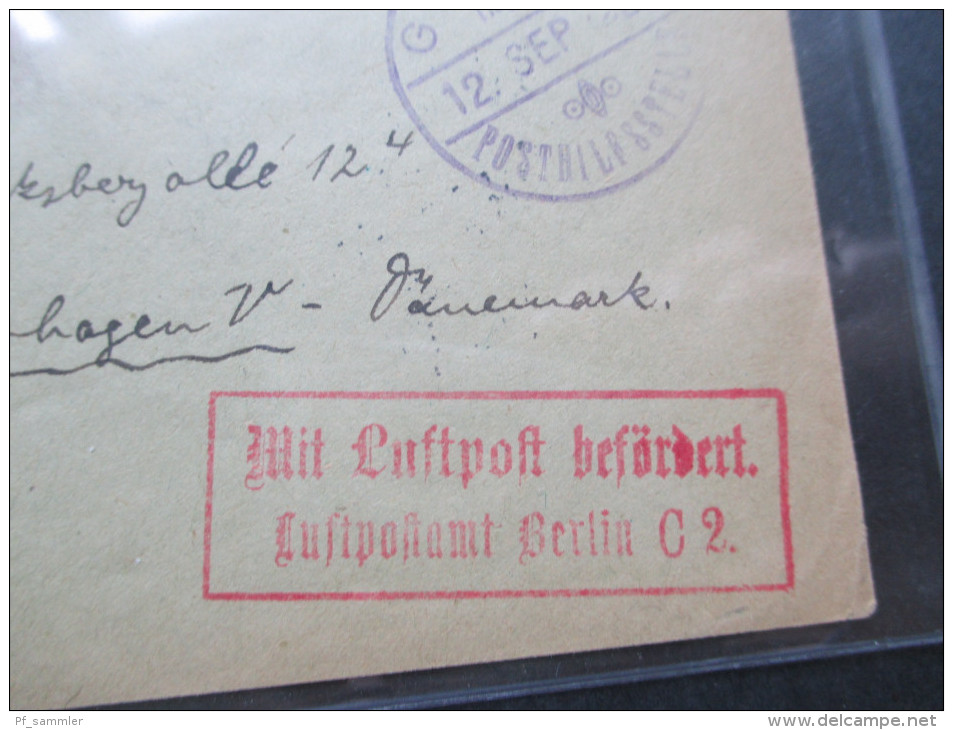 G
12. SEP
POSTHILFSSTELLE
allé 12.4
hagen V - Dänemark.
Mit Luftpost befördert.
Luftpostamt Berlin C 2.
Pf_sammler
www.delcampe.net